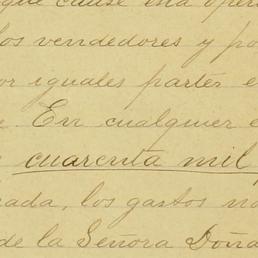 que cause esta oper
los vendedores y po
or iguales partes e
En cualquier e
cuarenta mil
nada, los gastos no
de la Señora Doña